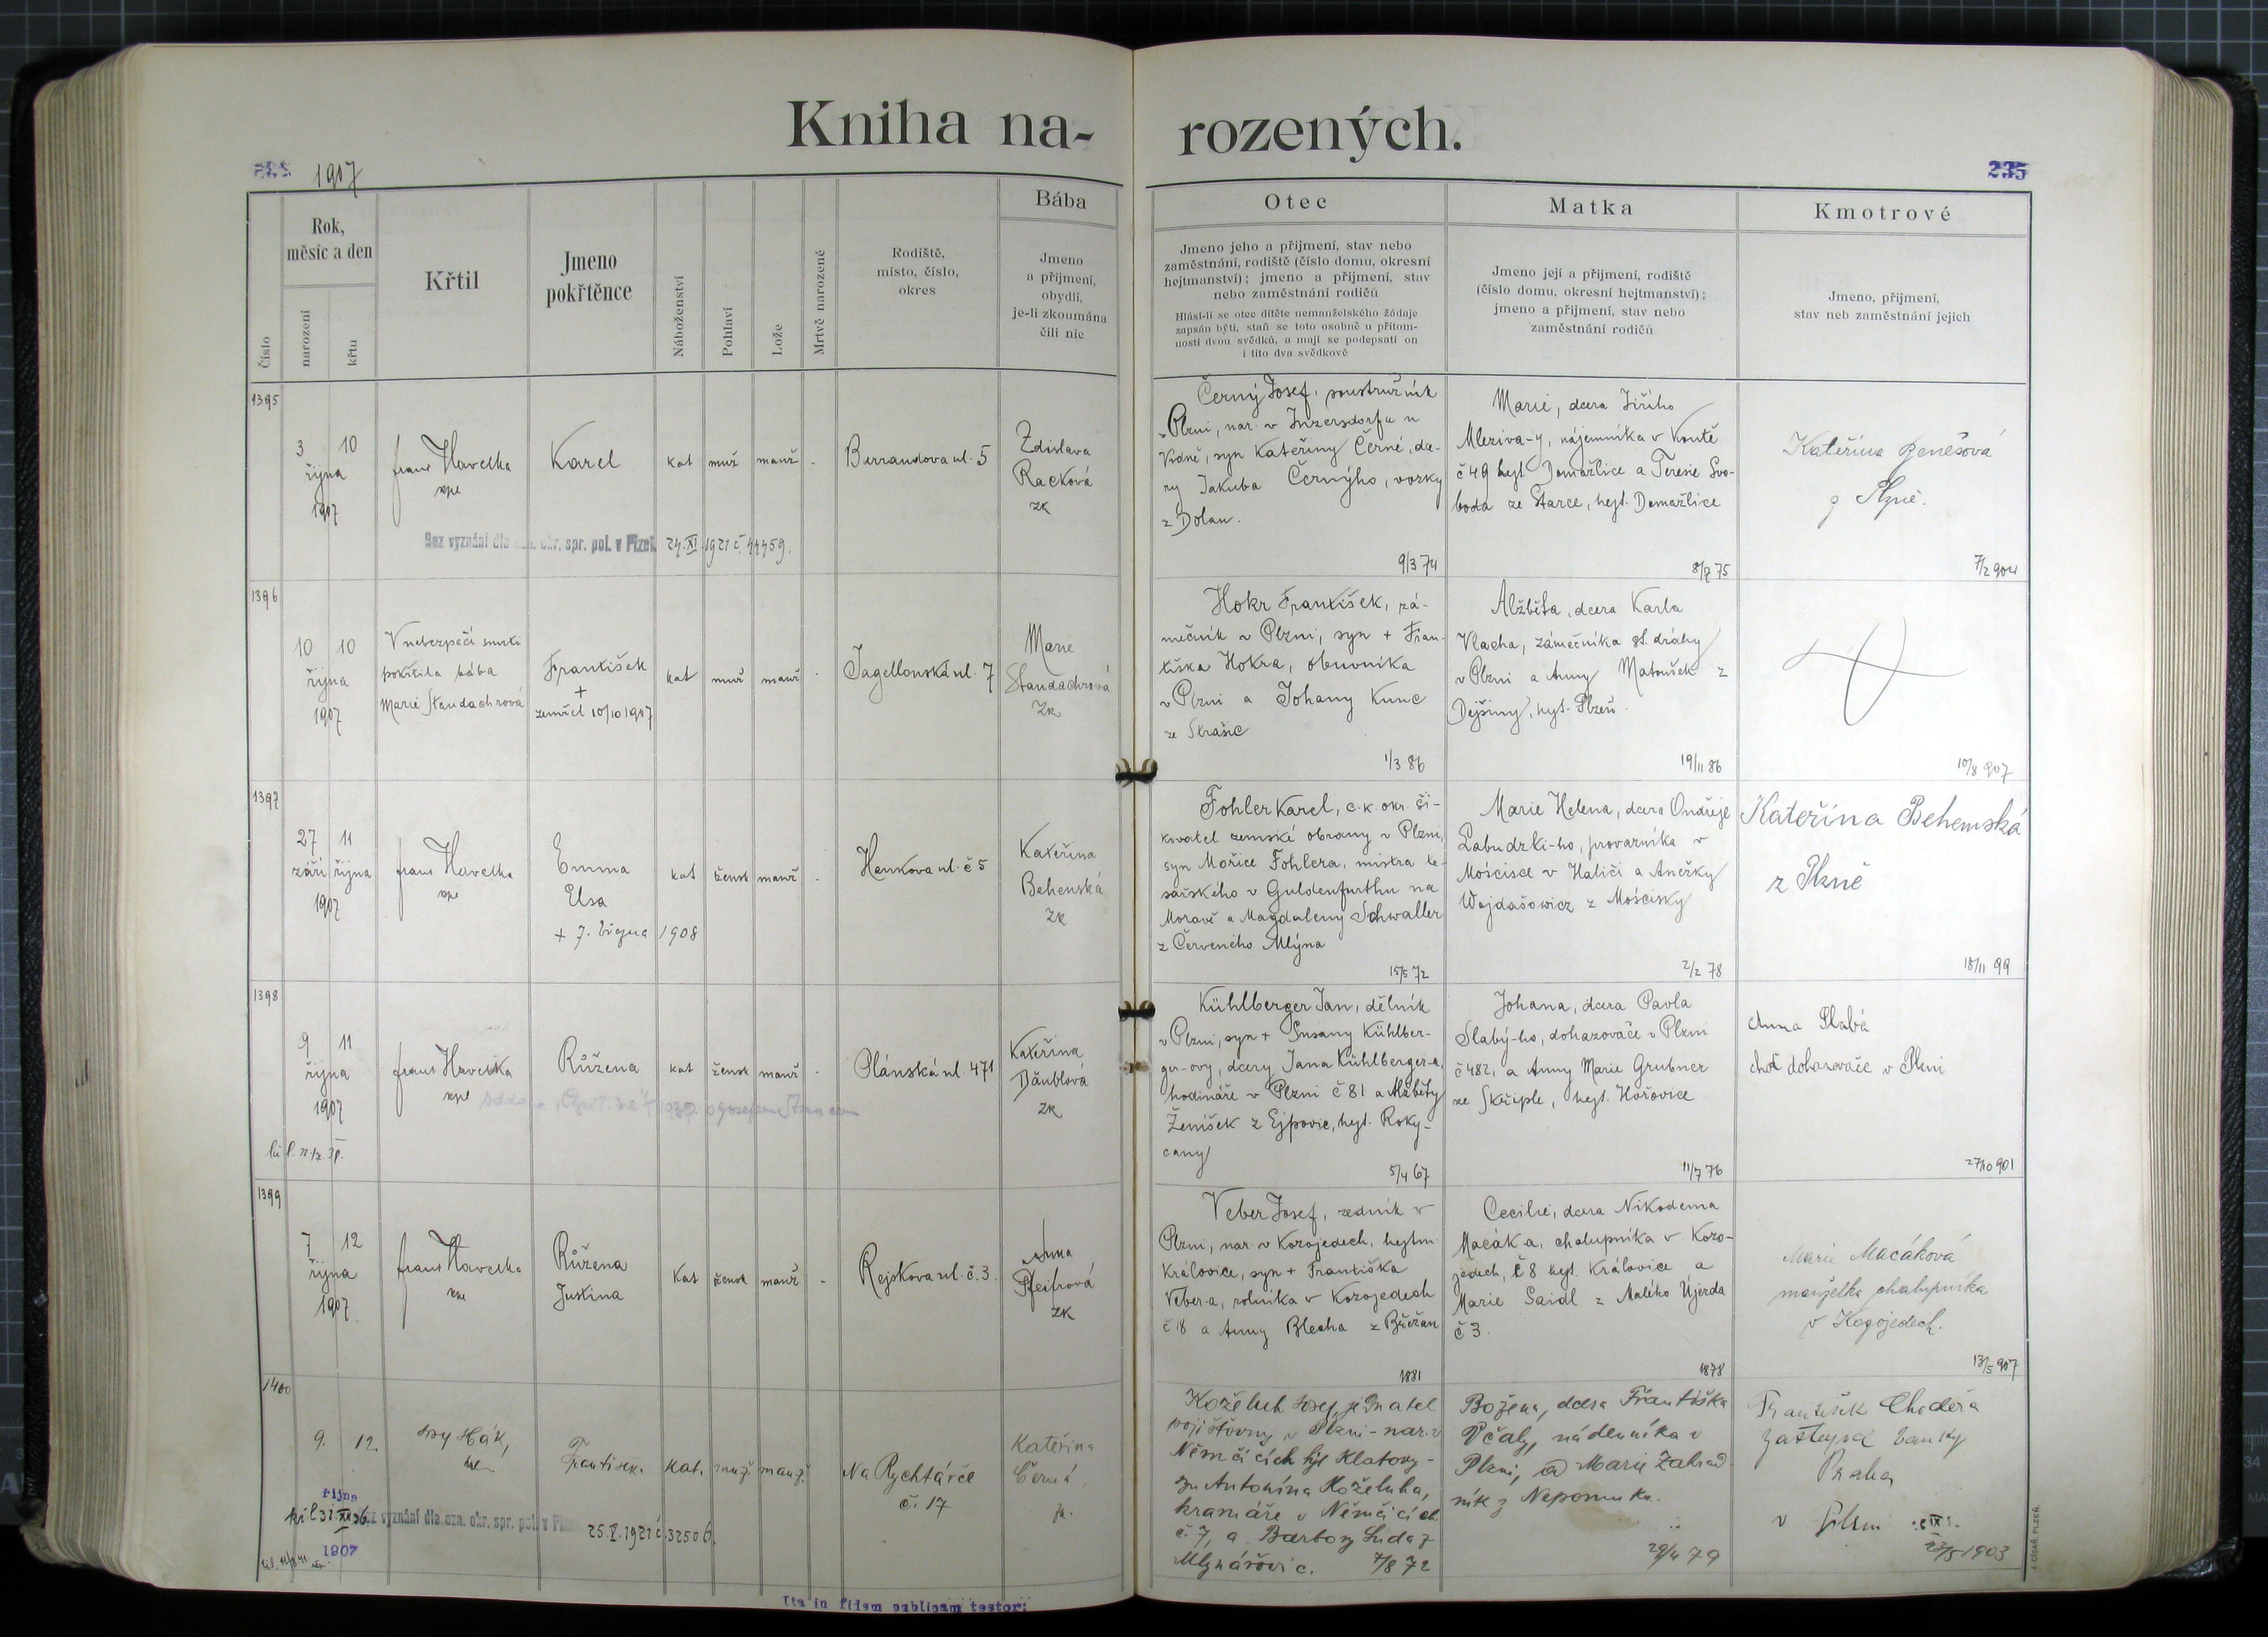 Kniha na-
rozených.
1907
235
Číslo
Rok,
měsíc a den
narození
křtu
Křtil
Jmeno
pokřtěnce
Náboženství
Pohlaví
Lože
Mrtvě narozené
Rodiště,
místo, číslo,
okres
Bába
Jmeno
a příjmení,
obydlí,
je-li zkoumána
čili nic
Otec
Jmeno jeho a příjmení, stav nebo
zaměstnání, rodiště (číslo domu, okresní
hejtmanství); jmeno a příjmení, stav
nebo zaměstnání rodičů
Hlásí-li se otec dítěte nemanželského žádaje
zapsán býti, staň se toto osobně u přítom-
nosti dvou svědků, a mají se podepsati on
i tito dva svědkové
Matka
Jmeno její a příjmení, rodiště
(číslo domu, okresní hejtmanství);
jmeno a příjmení, stav nebo
zaměstnání rodičů
Kmotrové
Jmeno, příjmení,
stav neb zaměstnání jejich
1395
3 10
října
1907
Havelka
Karel
kat muž manž -
Burrandova ul. 5
Zdislava
Racková
zk
Bez vyznání dle ozn. okr. spr. pol. v Plzni 24.XI.1921 č. 44459.
Černý Josef, soustružník
v Plzni, nar. v Inzersdorfu u
Vídně, syn Kateřiny Černé, dce-
ry Jakuba Černýho, vozky
z Dolan.
9/3 74
Marie, dcera Jiřího
Mleziva-y, nájemníka v Koutě
č 49 hejt. Domažlice a Terezie Svo-
boda ze Starce, hejt. Domažlice
8/7 75
Kateřina Benešová
z Plzně.
7/2 904
1396
10 10
října
1907
V nebezpečí smrti
pokřtila bába
Marie Standachrová
František
+
zemřel 10/10 1907
kat muž manž -
Jagellonská ul. 7
Marie
Standachrová
zk
Hokr František, zá-
mečník v Plzni, syn + Fran-
tiška Hokra, obuvníka
v Plzni a Johany Kunc
ze Strašic
1/3 86
Alžběta, dcera Karla
Vlacha, zámečníka st. dráhy
v Plzni a Anny Matoušek z
Dejšiny, hejt. Plzeň.
19/11 86
10/8 907
1397
27 11
září října
1907
Havelka
Emma
Elsa
+ 7. března 1908
kat žensk manž -
Hankova ul. č 5
Kateřina
Behenská
zk
Fohler Karel, c.k. okr. ši-
kovatel zemské obrany v Plzni,
syn Mořice Fohlera, mistra te-
sařského v Guldenfurthu na
Moravě a Magdaleny Schwaller
z Červeného Mlýna
15/5 72
Marie Helena, dcera Ondřeje
Labudzki-ho, provazníka v
Mościsce v Haliči a Anežky
Wojdašowicz z Mościsky
2/2 78
Kateřina Behemská
z Plzně
18/11 99
1398
9 11
října
1907
Havelka
Růžena
kat žensk manž -
Plánská ul. 471
Kateřina
Däublová
zk
Kühlberger Jan, dělník
v Plzni, syn + Susany Kühlber-
ger-ovy, dcery Jana Kühlberger-a,
hodináře v Plzni č 81 a Alžběty
Ženíšek z Ejpovic, hejt. Roky-
cany
5/4 67
Johana, dcera Pavla
Slabý-ho, dohazovače v Plzni
č 482, a Anny Marie Grubner
ze Skřiple, hejt. Hořovice
11/7 76
Anna Slabá
choť dohazovače v Plzni
27/10 901
1399
7 12
října
1907
Havelka
Růžena
Justina
Kat žensk manž -
Rejskova ul. č. 3.
Anna
Pfeifrová
zk
Veber Josef, zedník v
Plzni, nar. v Kozojedech, hejtm.
Kralovice, syn + Františka
Veber-a, rolníka v Kozojedech
č 18 a Anny Blecha z Břežan
1881
Cecilie, dcera Nikodema
Macák a, chalupníka v Kozo-
jedech, č 8 hejt. Kralovice a
Marie Saidl z Malého Újezda
č 3.
1878
Marie Macáková
manželka chalupníka
v Kozojedech.
13/5 907
1400
9. 12.
října
1907
Hák,
František.
kat. muž. manž.
Na Rychtářce
č. 17
Kateřina
Černá
Bez vyznání dle ozn. okr. spr. pol. v Plzni 25.V.1921 č. 32506
Koželuh Josef, jednatel
pojišťovny v Plzni - nar. v
Němčicích hjt Klatovy -
syn Antonína Koželuha,
kramáře v Němčicích
č. 7, a Barbory Suda z
Mlynářovic. 7/8 72
Božena, dcera Františka
Včaly, nádenníka v
Plzni, a Marie Zahrad
ník z Nepomuka.
29/4 79
František Chodera
zástupce banky
Praha
v Plzni
23/5 1903
Ita in fidem publicam testor:
J. CÍSAŘ, PLZEŇ.